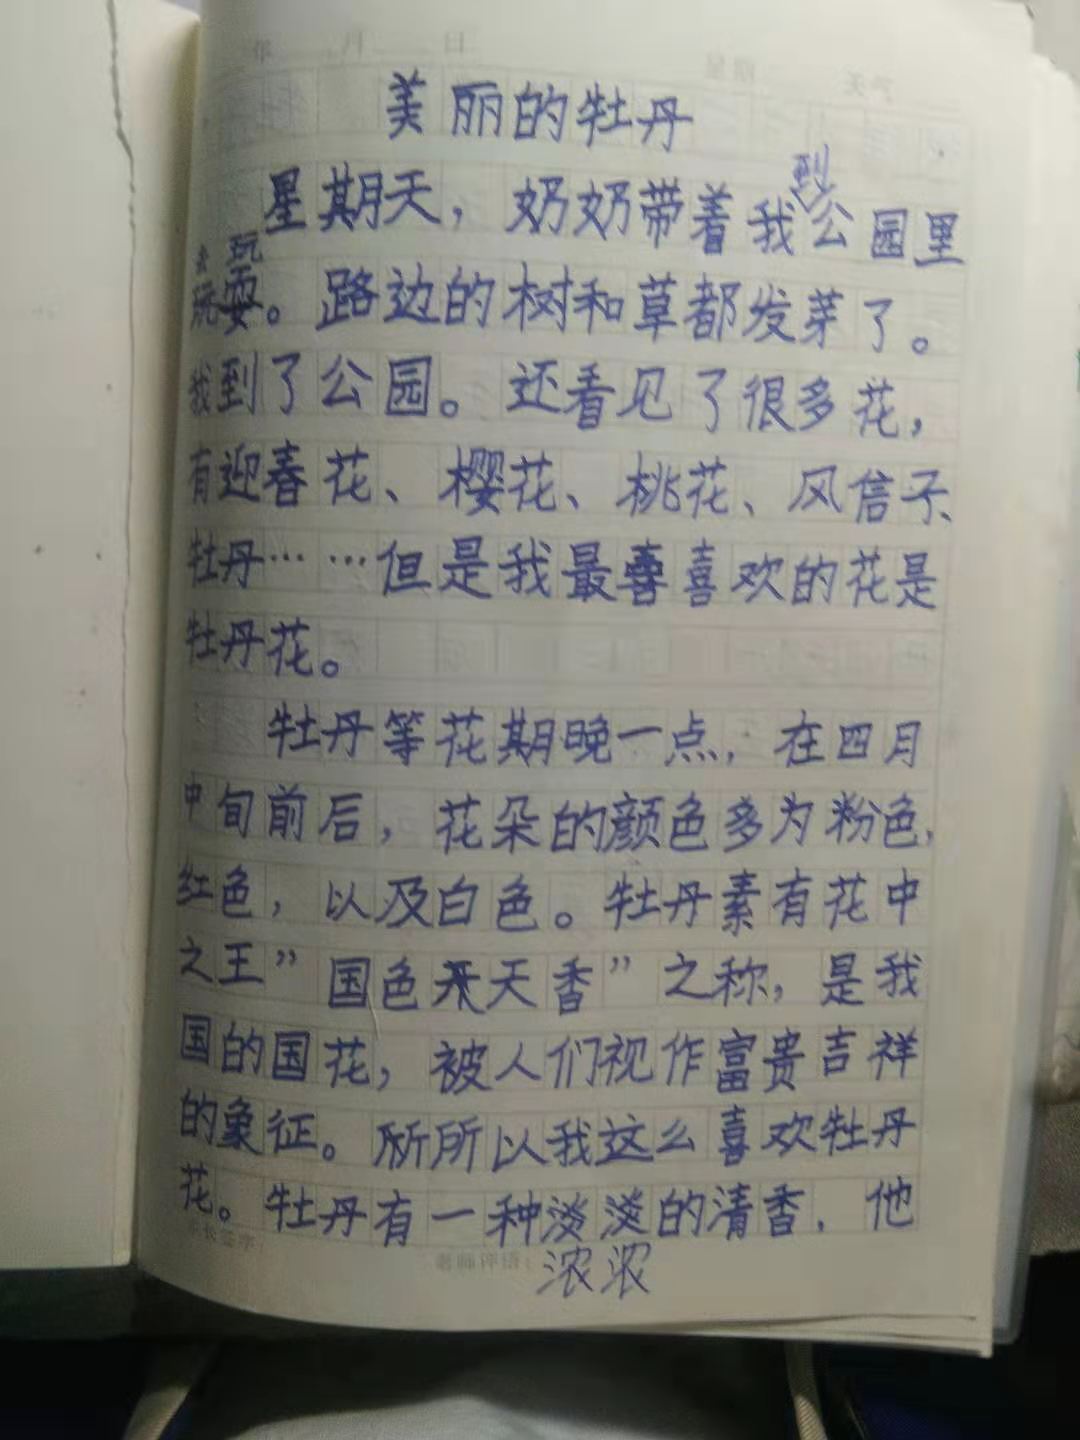 美丽的牡丹
到
星期天，奶奶带着我公园里
去玩
玩耍。路边的树和草都发芽了。
我到了公园。还看见了很多花，
有迎春花、樱花、桃花、风信子、
牡丹……但是我最喜欢的花是
牡丹花。
牡丹等花期晚一点，在四月
中旬前后，花朵的颜色多为粉色，
红色，以及白色。牡丹素有花中
之王”国色天香”之称，是我
国的国花，被人们视作富贵吉祥
的象征。所以我这么喜欢牡丹
花。牡丹有一种淡淡的清香，他
浓浓